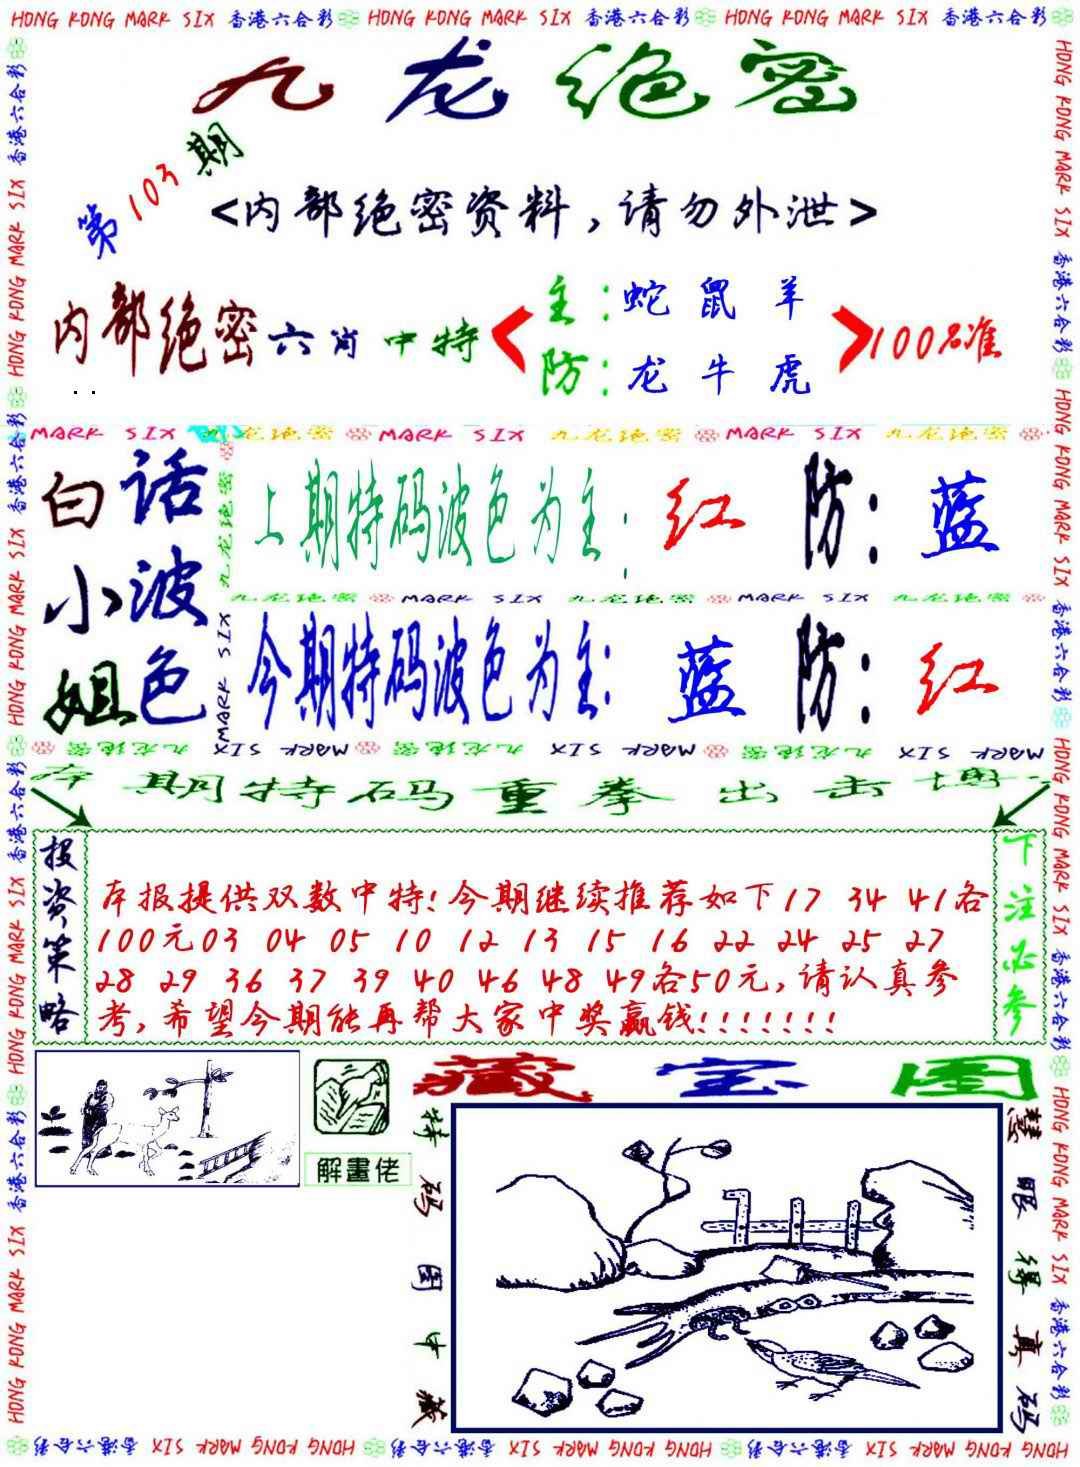 HONG KONG MARK SIX 香港六合彩 HONG KONG MARK SIX 香港六合彩 HONG KONG MARK SIX 香港六合彩
九龙绝密
第103期
<内部绝密资料,请勿外泄>
内部绝密六肖中特
主:蛇 鼠 羊
防:龙 牛 虎
100%准
MARK SIX 九龙绝密 MARK SIX 九龙绝密 MARK SIX 九龙绝密
白小姐
话波色
上期特码波色为主:红 防:蓝
九龙绝密 MARK SIX 九龙绝密 MARK SIX 九龙绝密
今期特码波色为主:蓝 防:红
MARK SIX 九龙绝密 MARK SIX 九龙绝密 MARK SIX 九龙绝密 MARK SIX
本期特码重拳出击博
投资策略
本报提供双数中特!今期继续推荐如下17 34 41各
100元03 04 05 10 12 13 15 16 22 24 25 27
28 29 36 37 39 40 46 48 49各50元,请认真参
考,希望今期能再帮大家中奖赢钱!!!!!!!
下注必参
解畫佬
藏宝图
特码图中藏
慧眼得真码
HONG KONG MARK SIX 香港六合彩 HONG KONG MARK SIX 香港六合彩 HONG KONG MARK SIX 香港六合彩